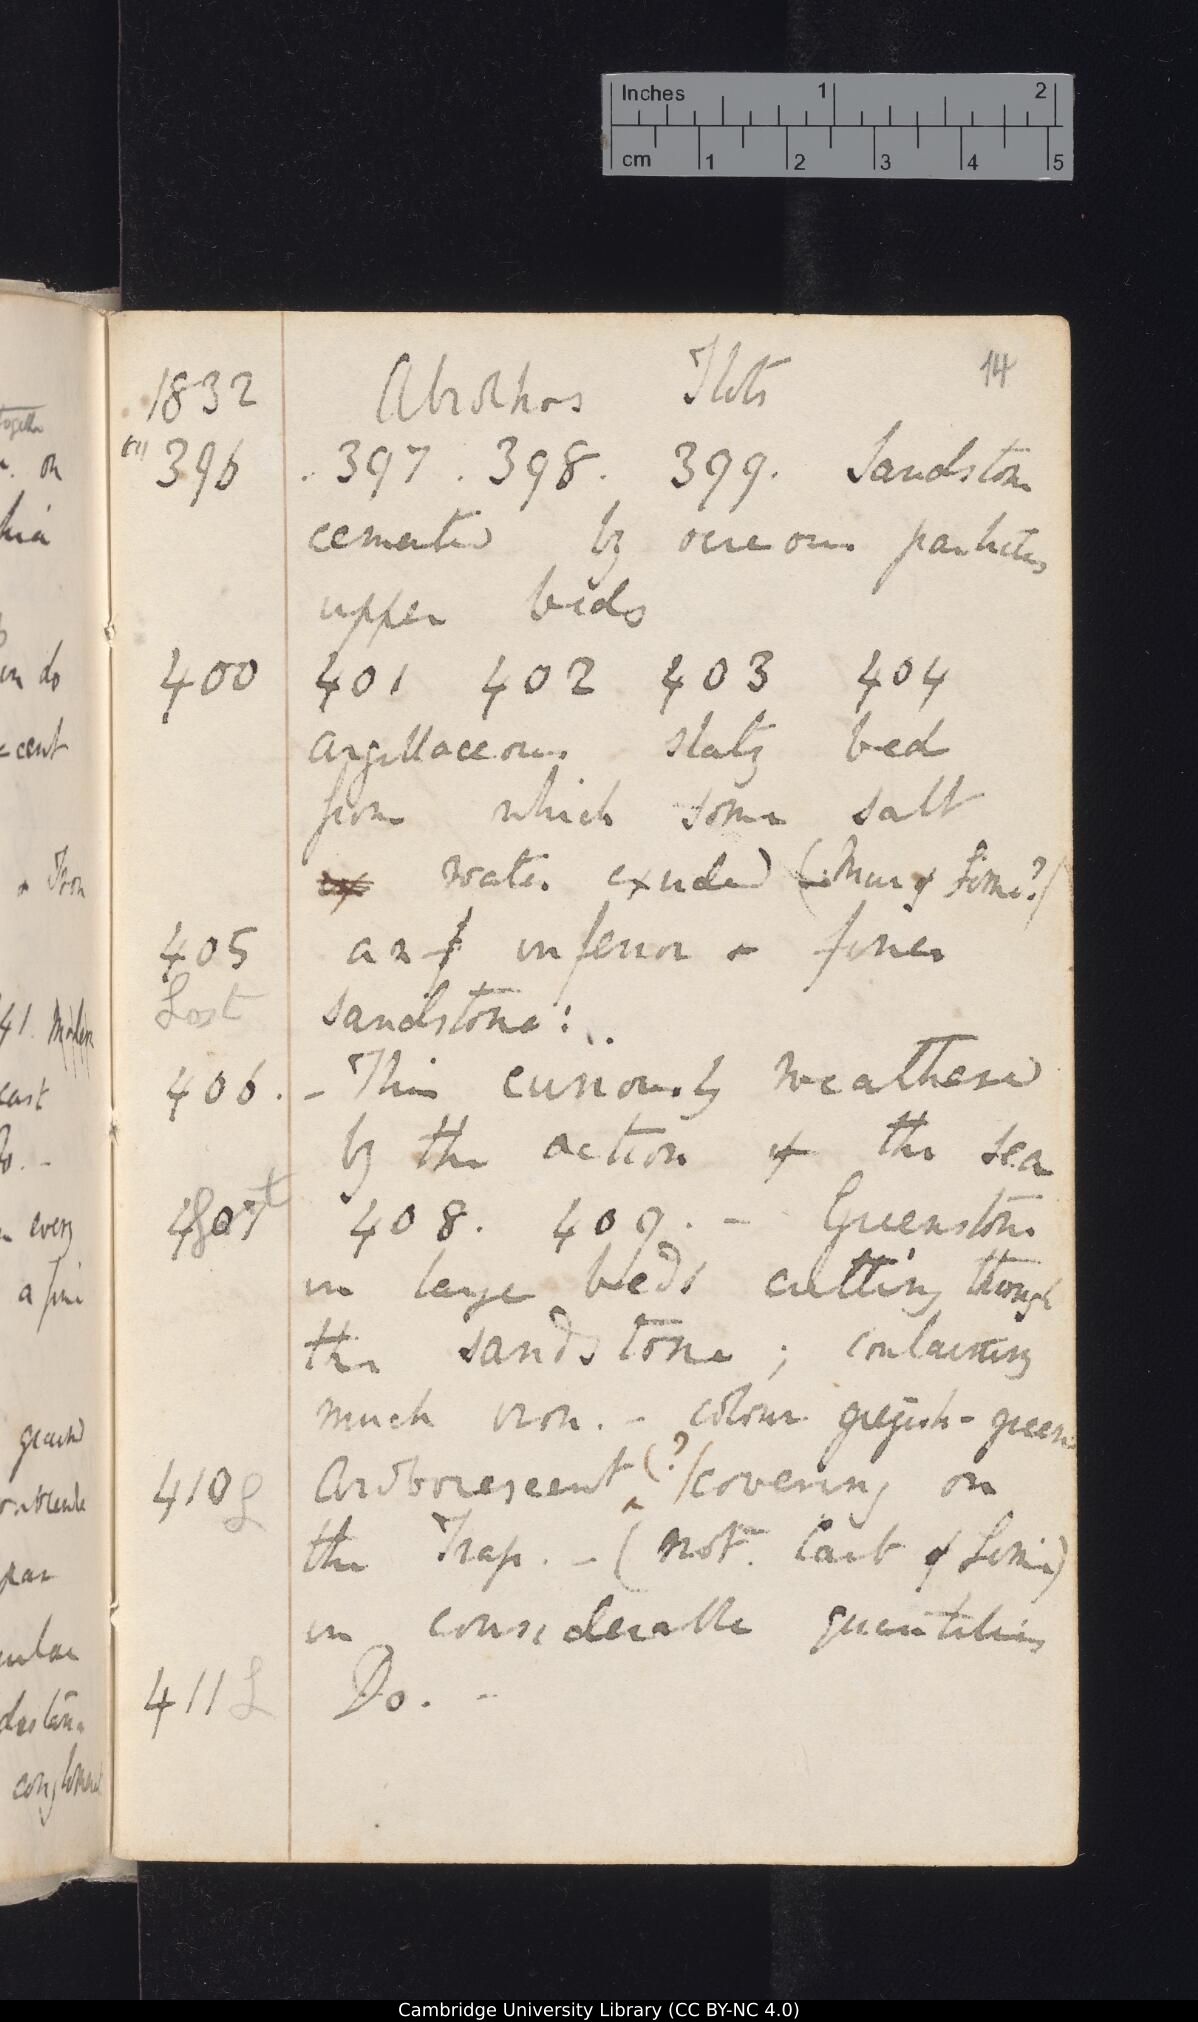 Inches 1 2
cm 1 2 3 4 5
14
1832 Abrolhos Ilots
396 . 397 . 398 . 399 . Sandstone
cemented by ocreous particles
upper beds
400 401 402 403 404
argillaceous slaty bed
from which some salt
water exuded (Mur of Lime?)
405 an inferior & finer
Lost sandstone:
406 . – This curiously weathered
by the action of the sea
407 408 . 409 . – Greenstone
in large beds cutting through
the sandstone ; containing
much iron . – colour greyish-green
410 L Ardborescent (?) covering on
the Trap . – ( not Carb of Lime)
in considerable quantities
411 L Do . –
together
on
hia
do
cent
& Iron
41
cast
every
a fine
ground
par
Cambridge University Library (CC BY-NC 4.0)